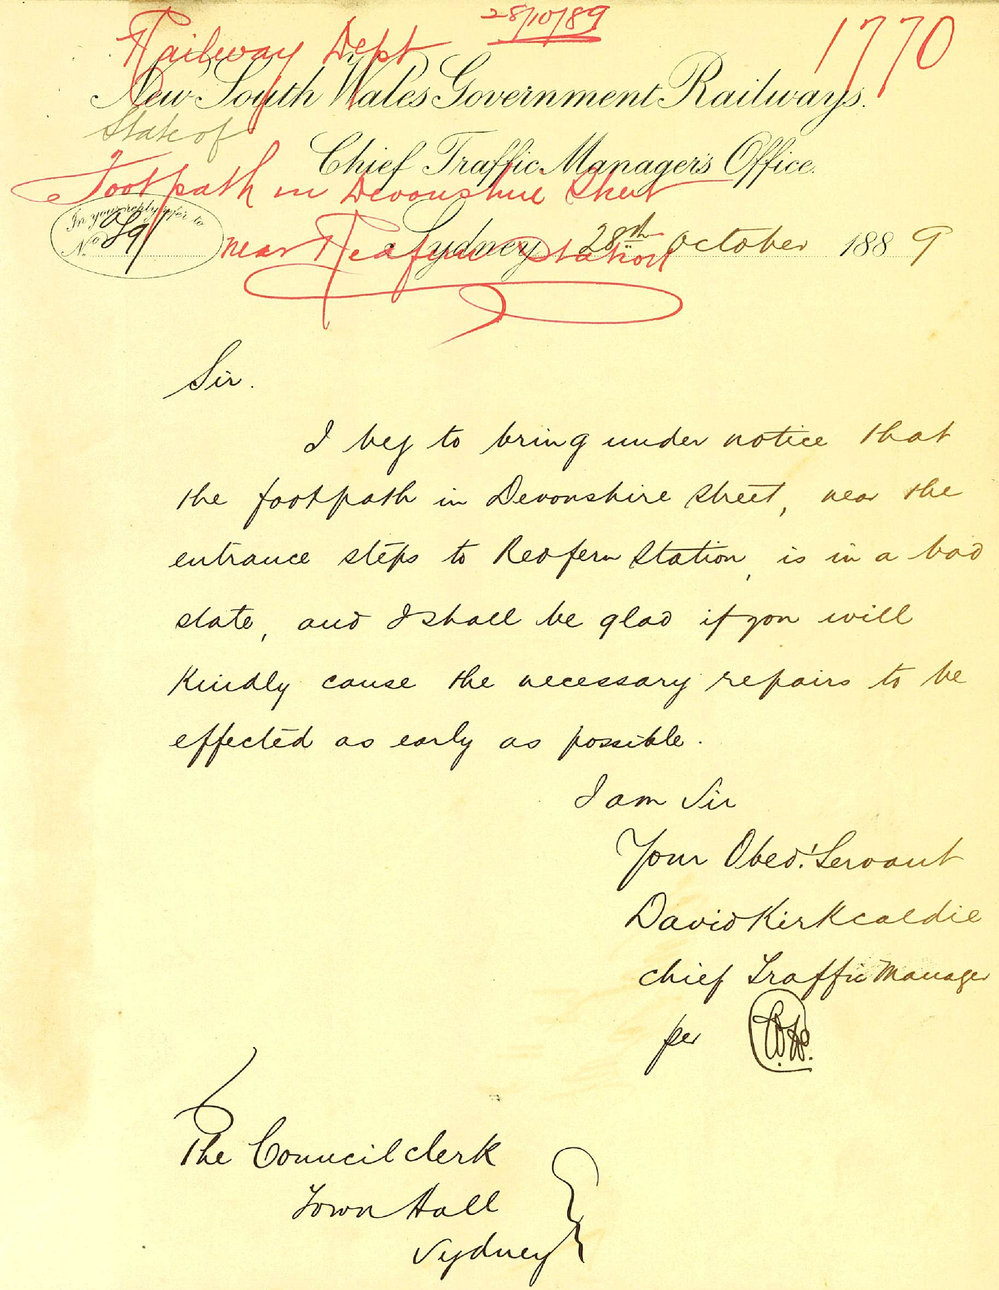 28/10/89
1770
Railway Dept
New South Wales Government Railways.
State of
Chief Traffic Manager's Office.
Footpath in Devonshire Street
In your reply refer to
No. 89/
near Redfern Station
Sydney 28th October 1889
Sir.
I beg to bring under notice that
the footpath in Devonshire Street, near the
entrance steps to Redfern Station, is in a bad
state, and I shall be glad if you will
kindly cause the necessary repairs to be
effected as early as possible.
I am Sir
Your Obed.t Servant
David Kirkcaldie
Chief Traffic Manager
per
The Council Clerk
Town Hall
Sydney